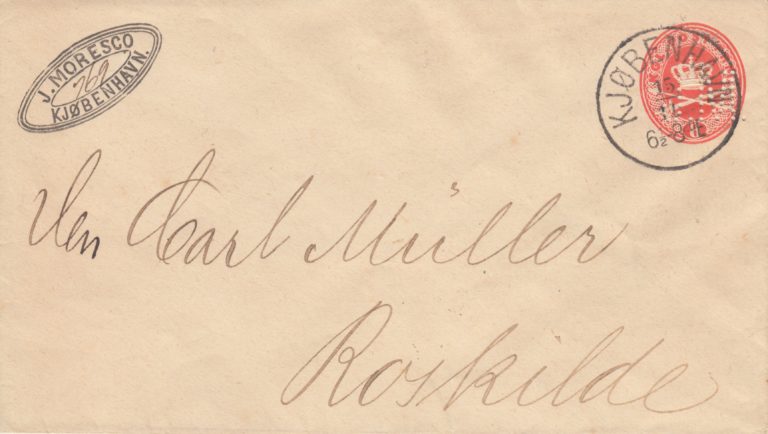 J. MORESCO
769
KJØBENHAVN.
KJØBENHAVN
15
11
Carl Müller
Roskilde